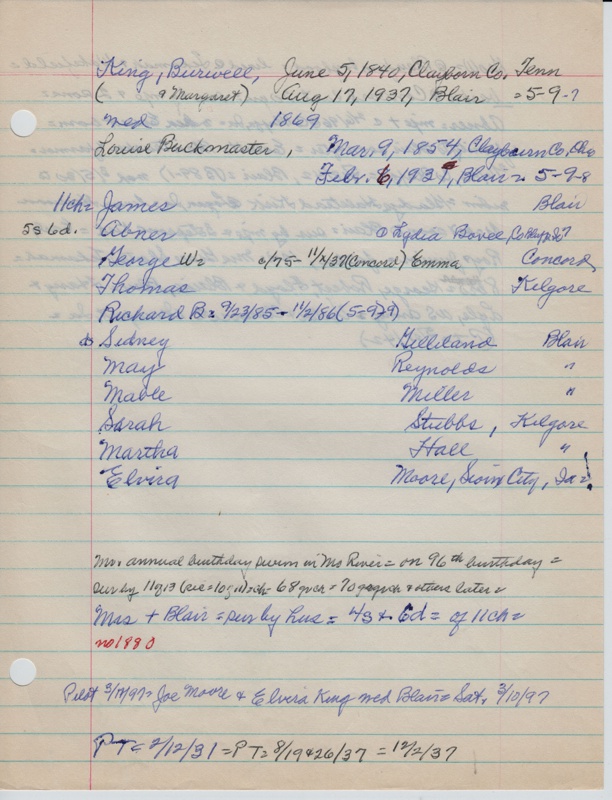 King, Burwell, June 5, 1840, Clayborn Co. Tenn
( & Margaret) Aug 17, 1937, Blair = 5-9-7
wed 1869
Louise Buckmaster, Mar. 9, 1854, Claybourn Co,
Febr. 6, 1931, Blair = 5-9-8
11ch = James Blair
5s 6d. = Abner Lydia Bovee,
George W = c/75 - 11/ /37 (Concord) Emma Concord
Thomas Kilgore
Richard B = 9/23/85 - 11/2/86 (5-9-9)
ds Sidney Gilleland Blair
May Reynolds "
Mable Miller "
Sarah Stubbs, Kilgore
Martha Hall "
Elvira Moore, Sioux City, Ia =
Mr. annual birthday swim in Mo River = on 96th birthday =
sur by 11 of 13 ch = 68 grch = 70 & others later =
Mrs + Blair = sur by hus = 4s & 6d = of 11ch =
no 1880
Pilot 3/17/97 = Joe Moore & Elvira King wed Blair = Sat. 3/10/97
PT = 2/12/31 = PT = 8/19 & 26/37 = 12/2/37